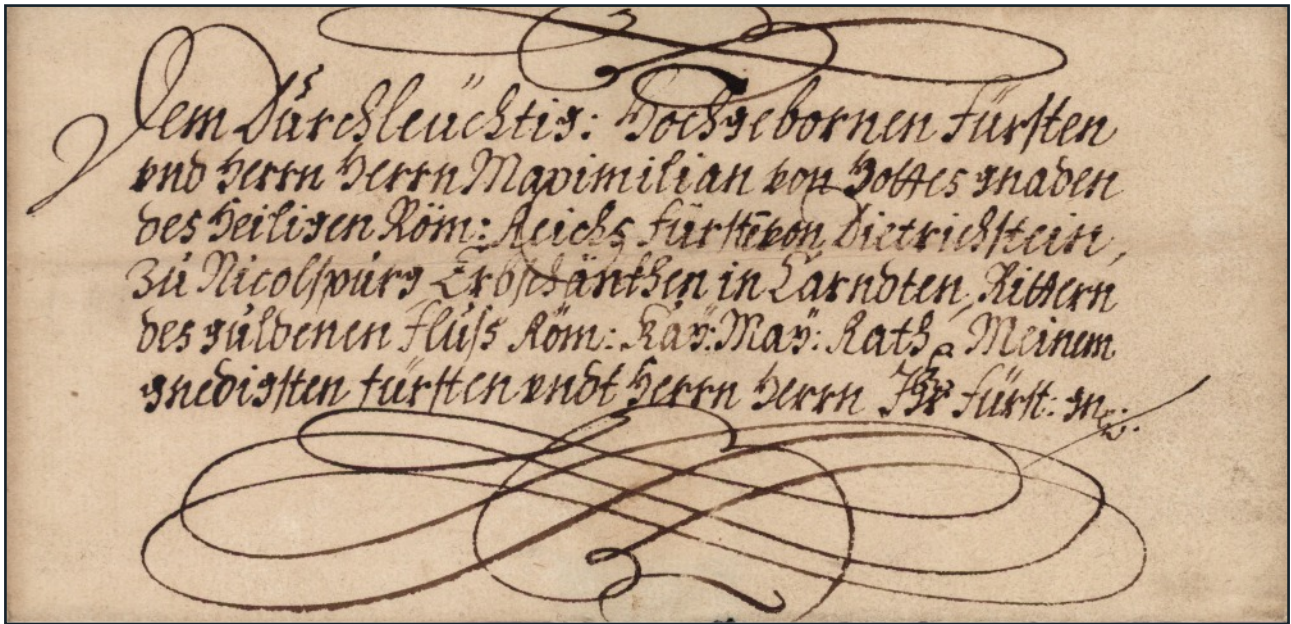 Dem Dürchleüchtig: Hochgebornen Fürsten
vnd Herrn Herrn Maximilian von Gottes gnaden
des Heiligen Röm: Reichs Fürstē von Dietrichstein,
Zü Nicolspürg Erbschänkhen in Carndten, Rittern
des güldenen Flüss Röm: Kaÿ: Maÿ: Rath, Meinem
gnedigsten fürsten vndt Herrn Herrn Ihr Fürst: gn: